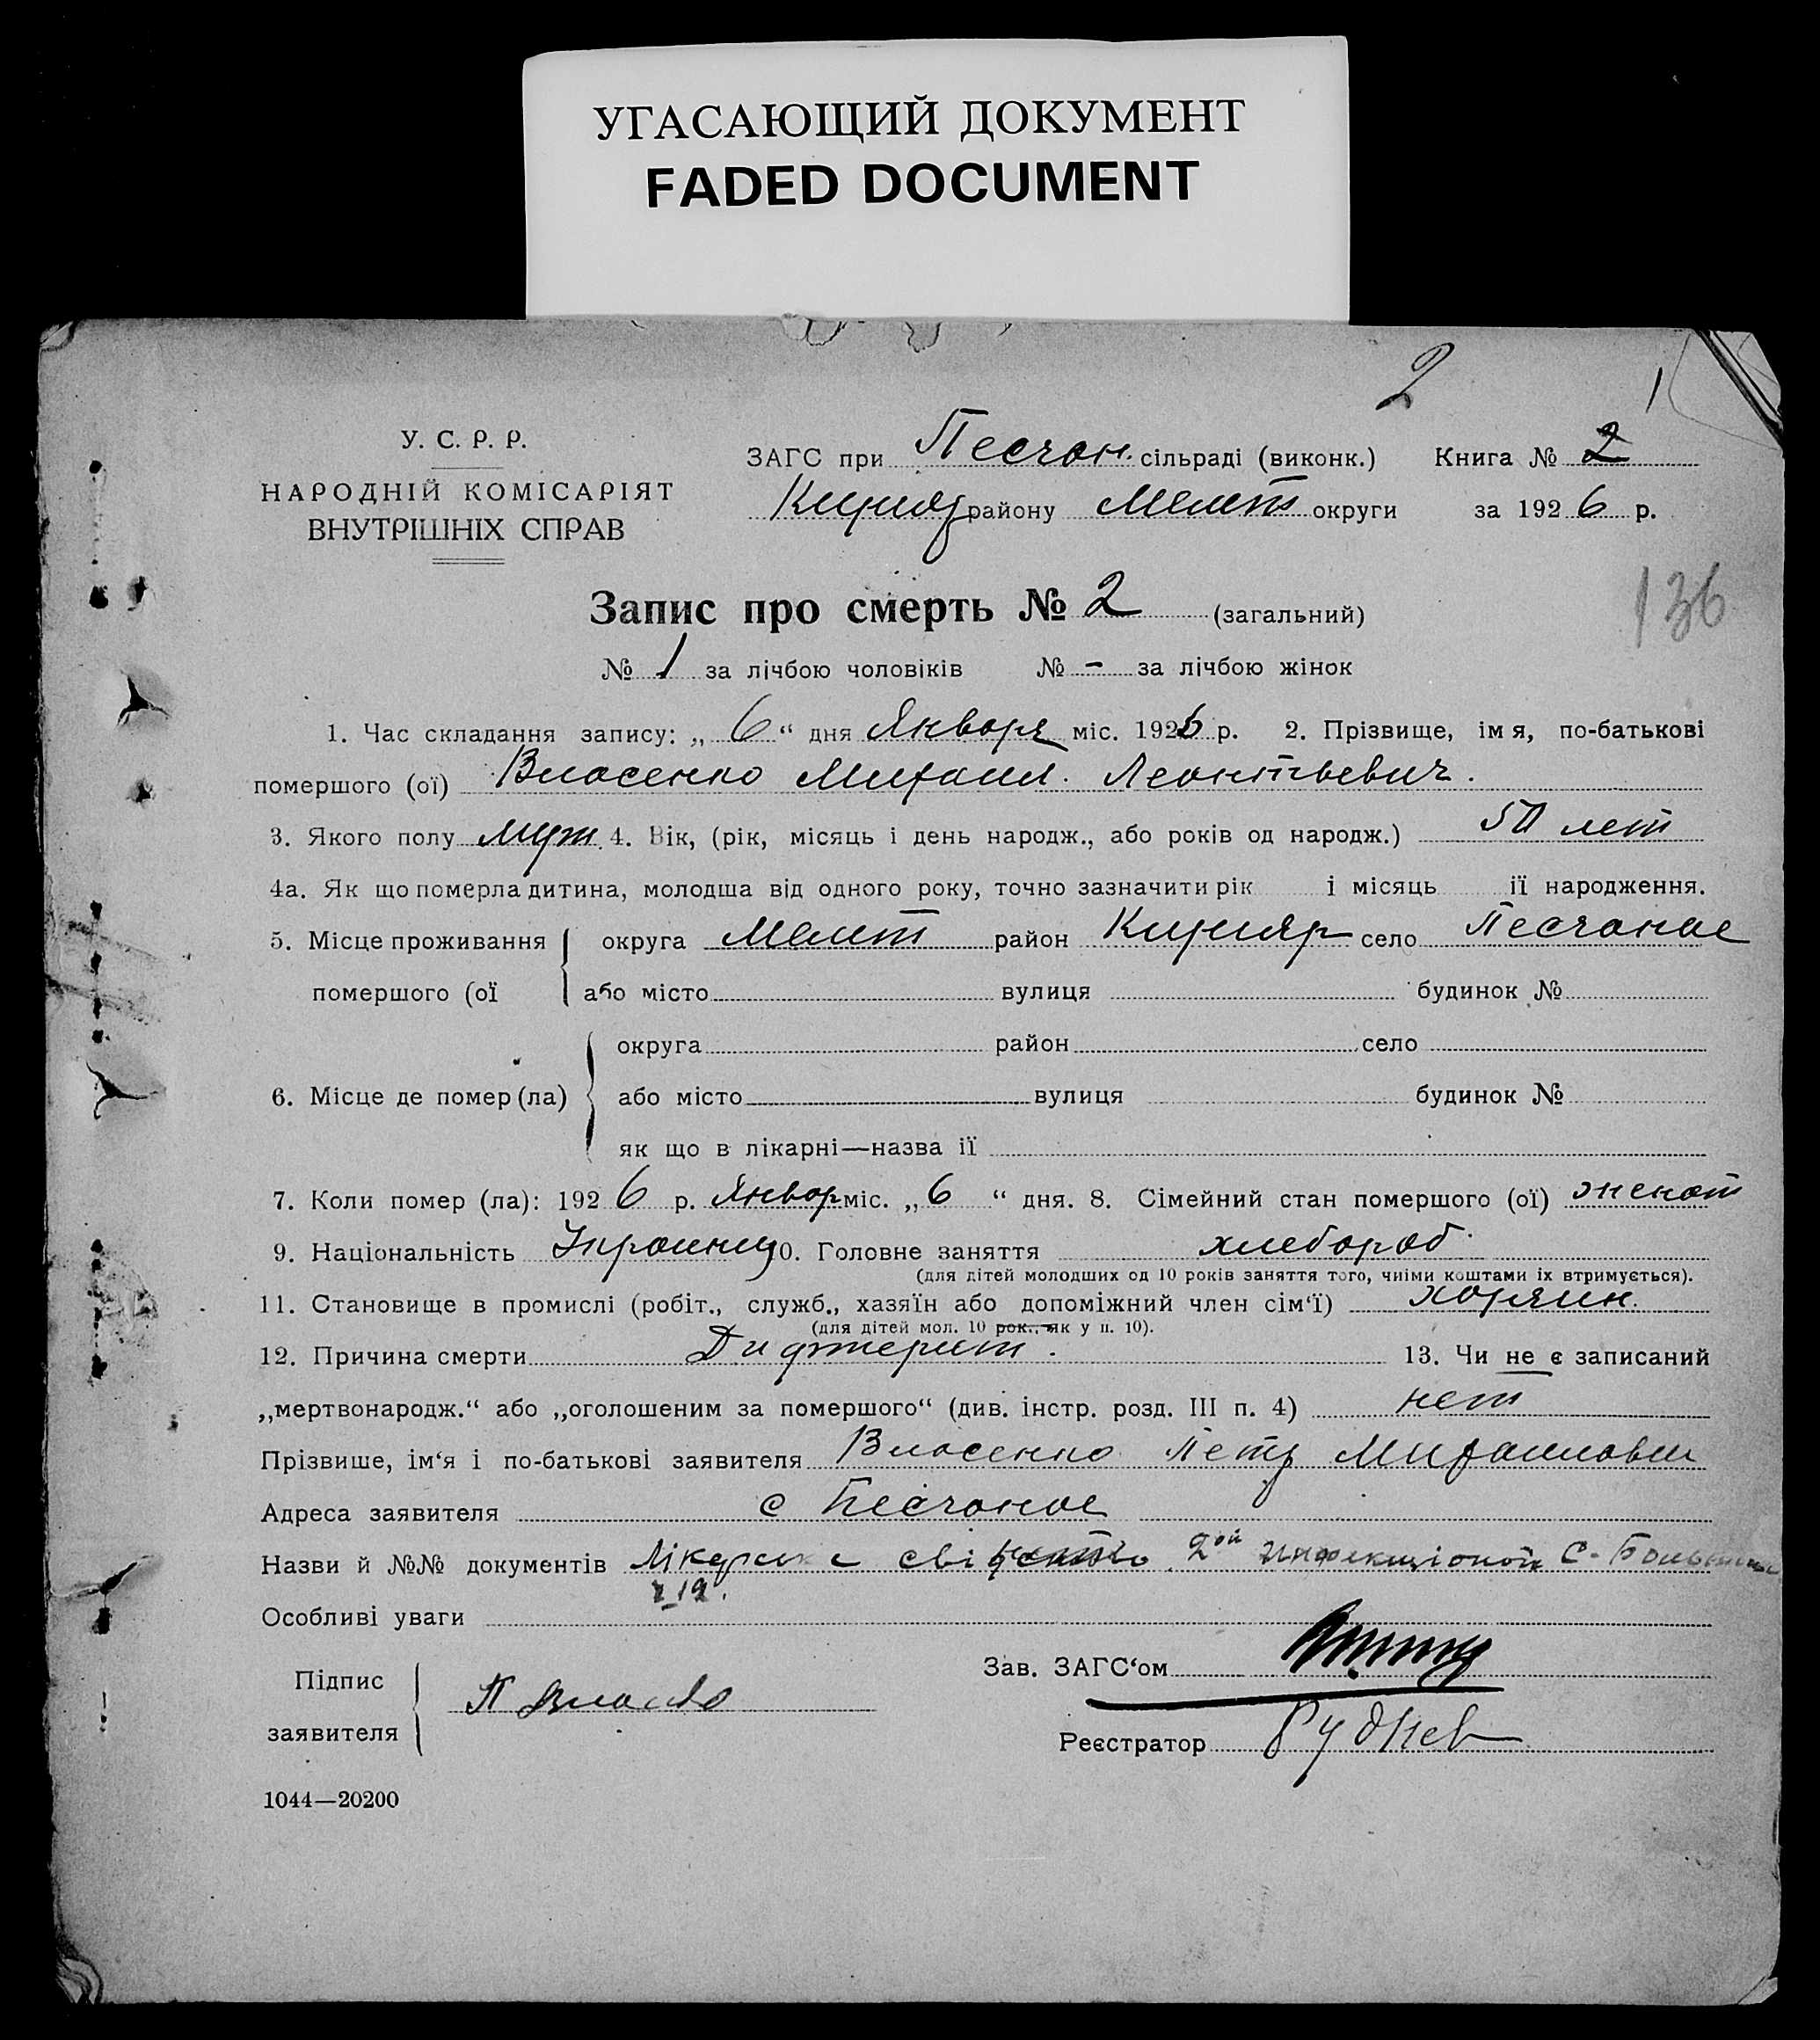 УГАСАЮЩИЙ ДОКУМЕНТ
FADED DOCUMENT
2 1
У. С. Р. Р.
НАРОДНІЙ КОМІСАРІЯТ
ВНУТРІШНІХ СПРАВ
ЗАГС при Песчан. сільраді (виконк.) Книга № 2
району Мелит округи за 1926 р.
136
Запис про смерть № 2 (загальний)
№ 1 за лічбою чоловіків № - за лічбою жінок
1. Час складання запису: „ 6 “ дня Января міс. 1926 р. 2. Прізвище, імя, по-батькові
помершого (ої) Власенко Михаил. Леонтьевич.
3. Якого полу муж 4. Вік, (рік, місяць і день народж., або років од народж.) 50 лет
4а. Як що померла дитина, молодша від одного року, точно зазначити рік і місяць її народження.
5. Місце проживання округа Мелит район село Песчаное
помершого (ої або місто вулиця будинок №
округа район село
6. Місце де помер (ла) або місто вулиця будинок №
як що в лікарні—назва її
7. Коли помер (ла): 1926 р. Январ міс. „ 6 “ дня. 8. Сімейний стан помершого (ої) женат
9. Національність Украинец 10. Головне заняття хлебороб
(для дітей молодших од 10 років заняття того, чиїми коштами їх втримується).
11. Становище в промислі (робіт., служб., хазяїн або допоміжний член сім‘ї) хозяин.
(для дітей мол. 10 рок., як у п. 10).
12. Причина смерти Дифтерит. 13. Чи не є записаний
„мертвонародж.“ або „оголошеним за помершого“ (див. інстр. розд. III п. 4) нет
Прізвише, ім‘я і по-батькові заявителя Власенко Петр Михаилович
Адреса заявителя с Песчаное
Назви й №№ документів Лікарське 2ой С-Больницы
Особливі уваги
Підпис
заявителя П Власенко
Зав. ЗАГС‘ом
Реєстратор Руднев
1044—20200